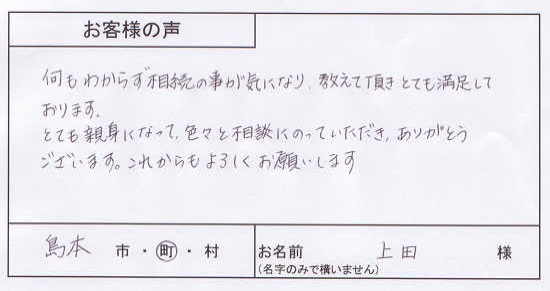 お客様の声
何もわからず相続の事が気になり、教えて頂きとても満足して
おります。
とても親身になって、色々と相談にのっていただき、ありがとう
ございます。これからもよろしくお願いします
島本 市・町・村 お名前 上田 様
(名字のみで構いません)